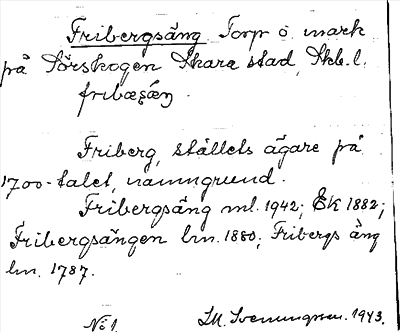 Fribergsäng Torp o. mark
på Sörskogen Skara stad, Skb. l.
Friberg, ställets ägare på
1700-talet, namngrund.
Fribergsäng ml. 1942; Ek 1882;
Fribergsängen lm. 1880; Fribergs äng
lm. 1787.
No 1. 1943.